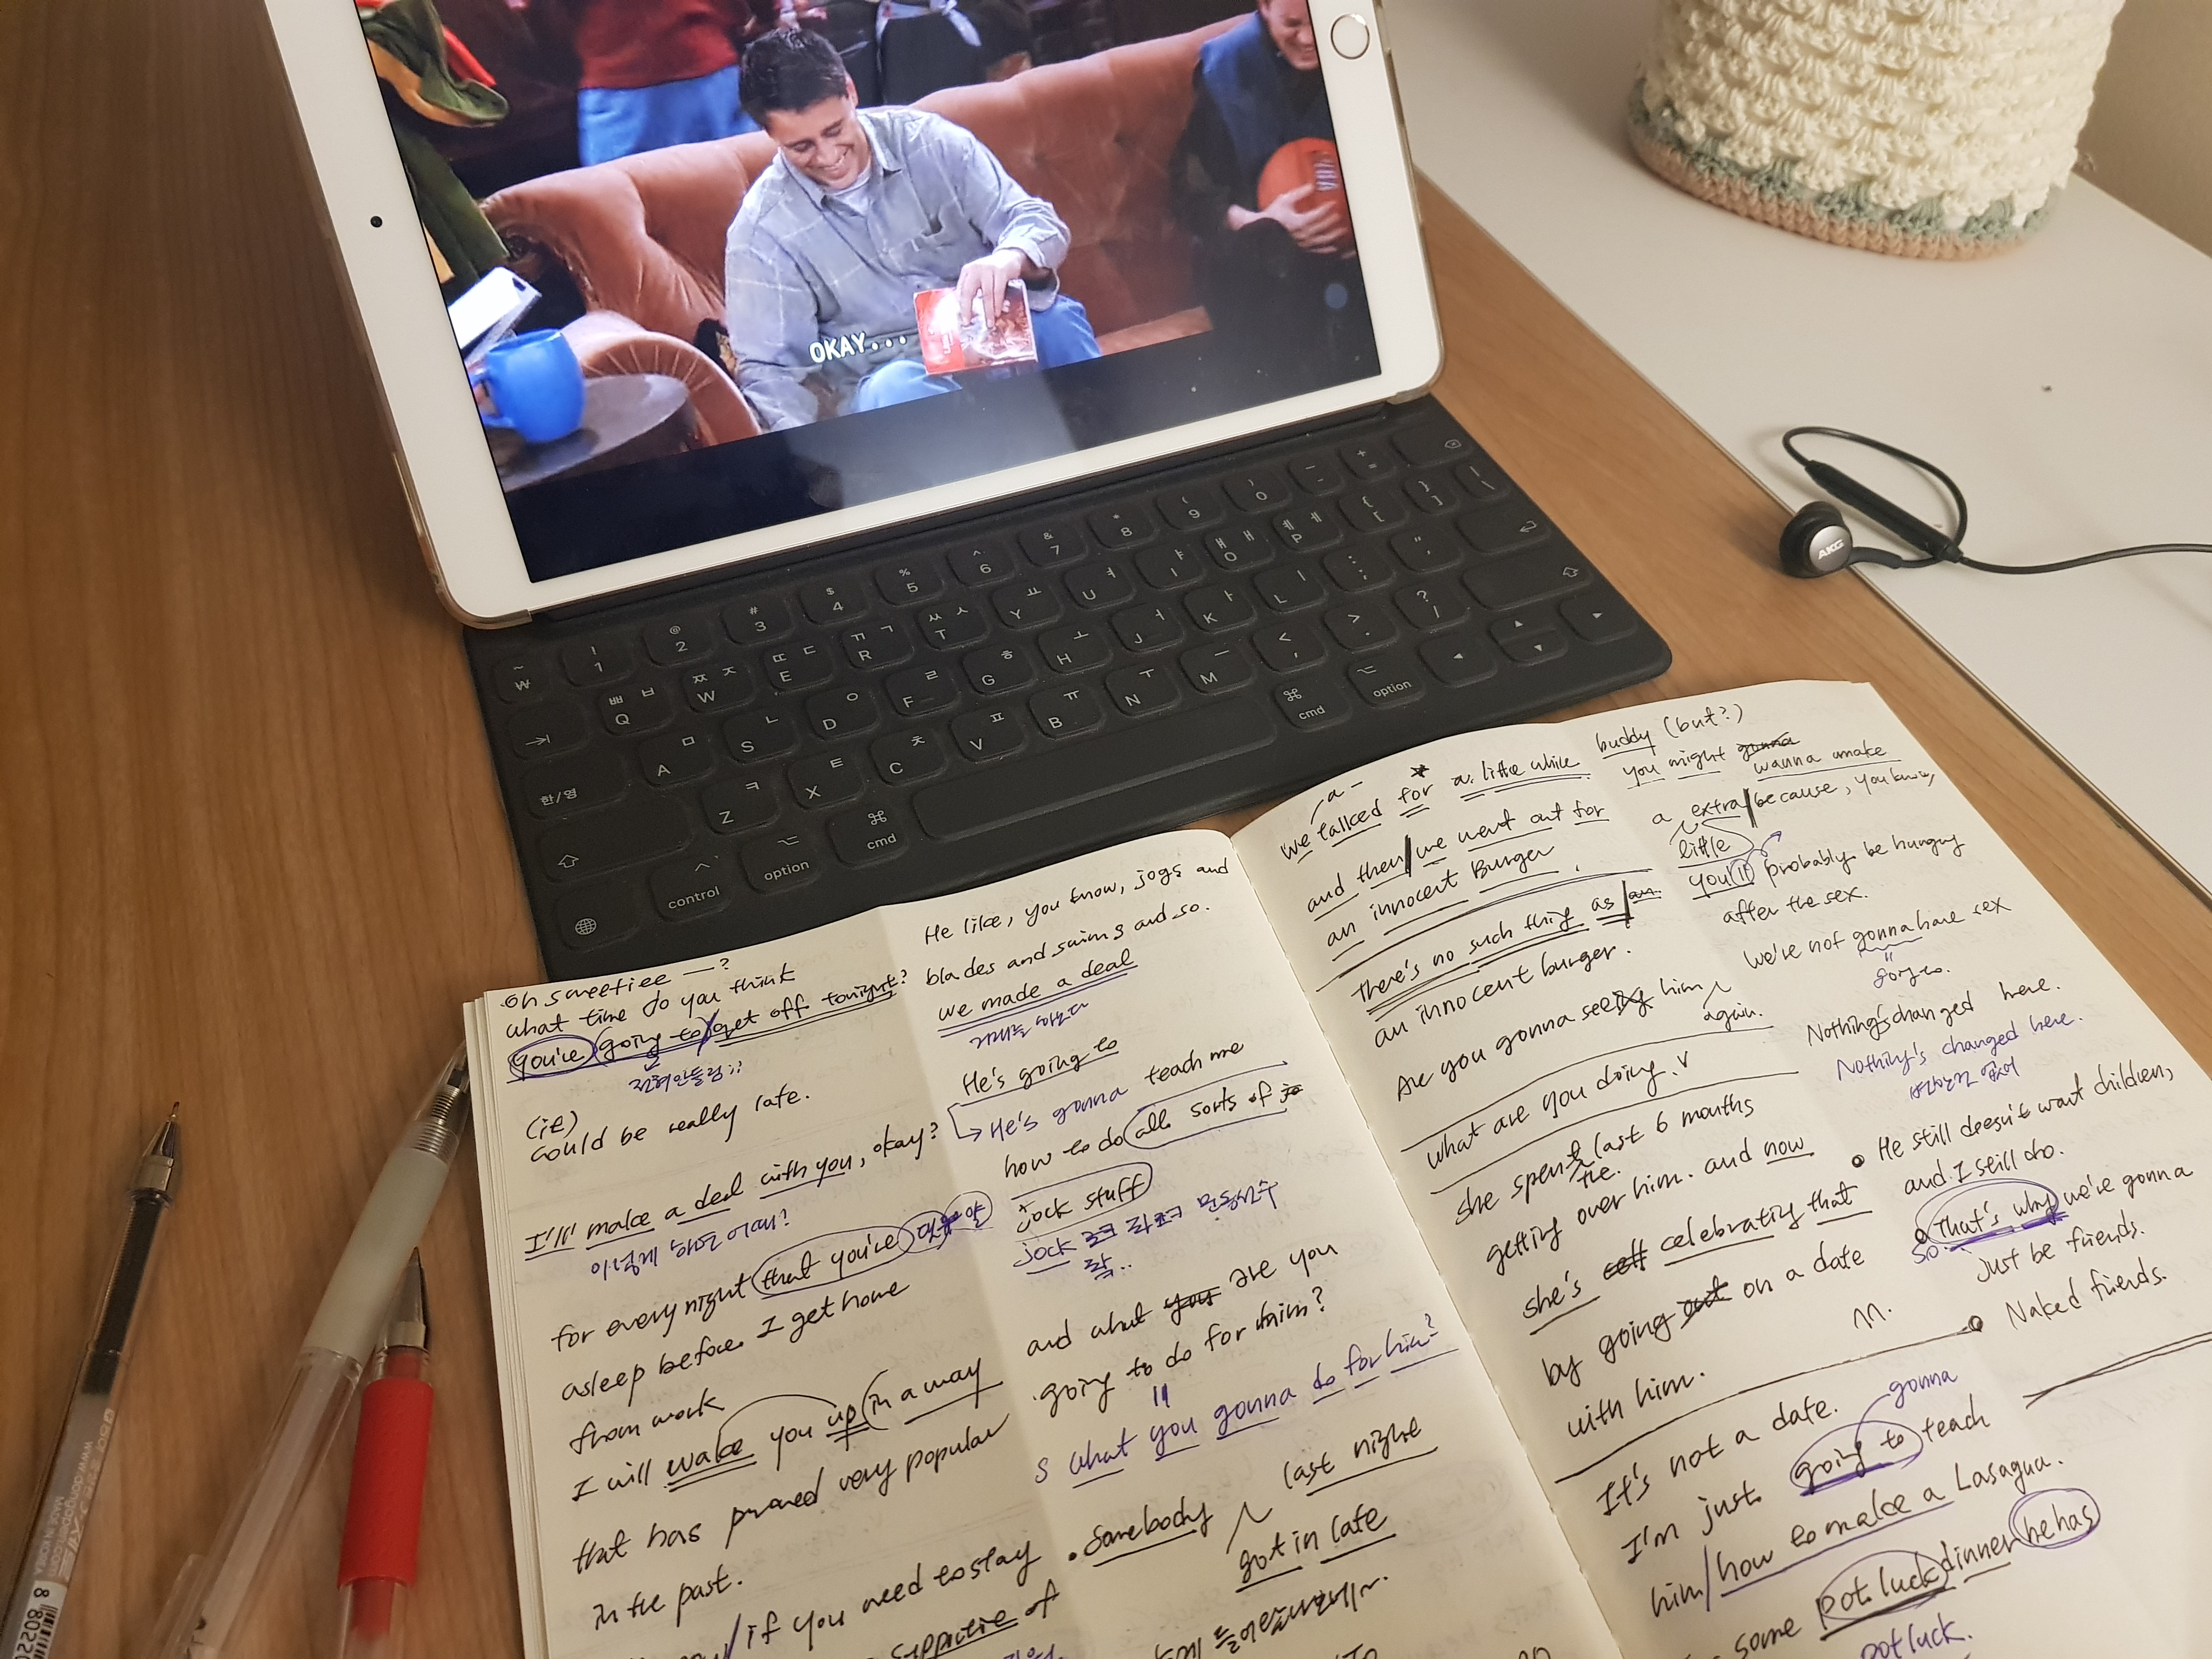 OKAY...
AKG
~ ₩
! 1
@ 2
# 3
$ 4
% 5
^ 6
& 7
* 8
( 9
) 0
- _
+ =
Q ㅃ ㅂ
W ㅉ ㅈ
E ㄸ ㄷ
R ㄲ ㄱ
T ㅆ ㅅ
Y ㅛ
U ㅕ
I ㅑ
O ㅒ ㅐ
P ㅖ ㅔ
{ [
} ]
| \
한/영
A ㅁ
S ㄴ
D ㅇ
F ㄹ
G ㅎ
H ㅗ
J ㅓ
K ㅏ
L ㅣ
: ;
" '
Z ㅋ
X ㅌ
C ㅊ
V ㅍ
B ㅠ
N ㅜ
M ㅡ
< ,
> .
? /
control
option
cmd
cmd
option
Oh sweetiee —?
what time do you think
you're going to get off tonight?
전혀 안들림;;
(it)
could be really late.
I'll make a deal with you, okay?
이렇게 하면 어때?
for every night that you're
asleep before I get home
from work
I will wake you up in a way
that has proved very popular
in the past.
if you need to stay
supportive of
He like, you know, jogs and
blades and swims and so.
we made a deal
거래를 하다
He's going to
He's gonna teach me
how to do all sorts of
jock stuff
jock
and what you are you
going to do for him?
what you gonna do for him?
last night
Somebody
got in late
a -
we talked for a little while
and then we went out for
an innocent Burger
There's no such thing as an
an innocent burger.
Are you gonna seeing him
again.
what are you doing. v
she spent last 6 months
the.
getting over him. and now
she's celebrating that
by going out on a date
with him.
It's not a date.
gonna
I'm just going to teach
him how to make a Lasagna.
some pot luck dinner he has
pot luck.
buddy (but?)
you might gonna
wanna make
a extra because, you know,
little
you'll probably be hungry
after the sex.
we're not gonna have sex
going to.
Nothing's changed here.
Nothing's changed here.
He still doesn't want children,
and I still do.
So. That's why we're gonna
just be friends.
Naked friends.
MADE IN KOREA